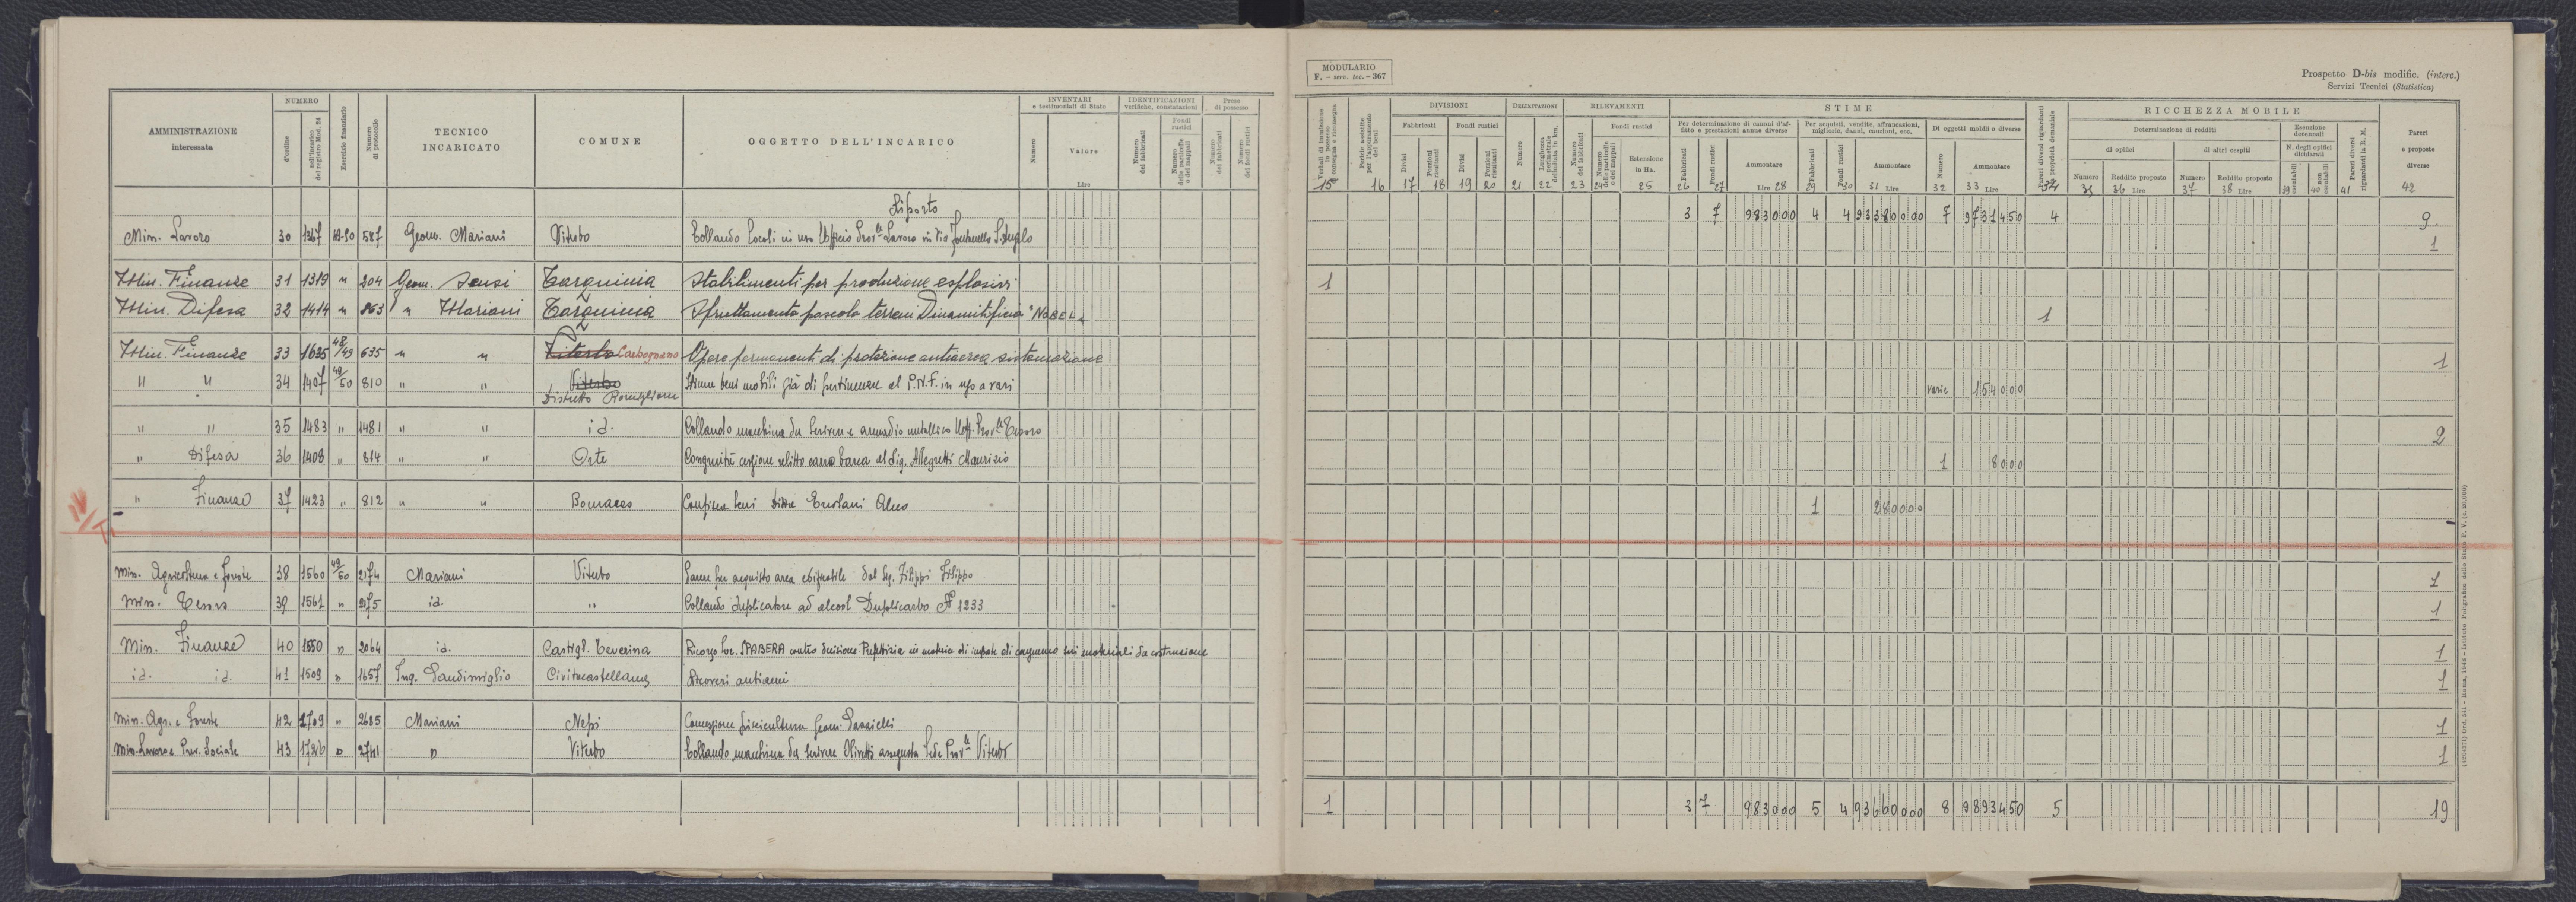 MODULARIO
F. - serv. tec. - 367
Prospetto D-bis modific. (interc.)
Servizi Tecnici (Statistica)
AMMINISTRAZIONE interessata
NUMERO
d'ordine
dell'incarico del registro Mod. 24
Esercizio finanziario
Numero di protocollo
TECNICO INCARICATO
COMUNE
OGGETTO DELL'INCARICO
INVENTARI e testimoniali di Stato
Numero
Valore
Lire
IDENTIFICAZIONI verifiche, constatazioni
Numero dei fabbricati
Fondi rustici
Numero delle particelle o dei mappali
Prese di possesso
Numero dei fabbricati
Numero dei fondi rustici
Verbali di immissione in possesso consegna e riconsegna
15
Partite allestite per l'appuramento dei beni
16
DIVISIONI
Fabbricati
Fondi rustici
Divisi 17
Porzioni risultanti 18
Divisi 19
Porzioni risultanti 20
DELIMITAZIONI
Numero 21
Lunghezza perimetrale delimitata in km. 22
RILEVAMENTI
Numero dei fabbricati 23
Fondi rustici
Numero delle particelle o dei mappali 24
Estensione in Ha. 25
STIME
Per determinazione di canoni d'affitto e prestazioni annue diverse
Fabbricati 26
Fondi rustici 27
Ammontare
Lire 28
Per acquisti, vendite, affrancazioni, migliorie, danni, cauzioni, ecc.
Fabbricati 29
Fondi rustici 30
Ammontare
31 Lire
Di oggetti mobili e diverse
Numero 32
Ammontare
33 Lire
Pareri diversi riguardanti la proprietà demaniale
34
RICCHEZZA MOBILE
Determinazione di redditi
di opifici
di altri cespiti
Numero 35
Reddito proposto 36 Lire
Numero 37
Reddito proposto 38 Lire
Esenzione decennali
N. degli opifici dichiarati
39 esentabili
40 non esentabili
41 Pareri diversi riguardanti la R. M.
Pareri e proposte diverse
42
Riporto 3 7 983000 4 4 93380000 7 9731450 4 9
Min. Lavoro 30 1267 49-50 587 Geom. Mariani Viterbo Collaudo locali in uso Ufficio Prov.le Lavoro in Via Fontanella S. Angelo 1
Min. Finanze 31 1319 " 204 Geom. Sensi Tarquinia Stabilimenti per produzione esplosivi 1
Min. Difesa 32 1414 " 863 " Mariani Tarquinia Sfruttamento pascolo terreni Dinamitificio "NOBEL" 1
Min. Finanze 33 1635 48/49 635 " " Viterbo Carbognano Opere permanenti di protezione antiaerea sistemazione 1
" " 34 1407 49/50 810 " " Viterbo Distretto Ronciglione Stima beni mobili già di pertinenza al P.N.F. in uso a vari varie 154000
" " 35 1483 " 1481 " " id. Collaudo macchina da scrivere e armadio metallico Uff. Prov.le Tesoro 2
" Difesa 36 1408 " 814 " " Orte Congruità cessione relitto carro barca al Sig. Allegretti Maurizio 1 8000
" Finanze 37 1423 " 812 " " Bomarzo Confisca beni Ditta 1 280000
Min. Agricoltura e Foreste 38 1560 49/50 2174 Mariani Viterbo Parere per acquisto area edificabile dal Sig. Filippi Filippo 1
Min. Tesoro 39 1561 " 2175 id. " Collaudo duplicatore ad alcool Duplicarbo N° 1233 1
Min. Finanze 40 1550 " 2064 id. Castigl. Teverina Ricorso Soc. SPABERA contro decisione Prefettizia in materia di imposte di consumo sui materiali da costruzione 1
id. id. 41 1509 " 1657 Ing. Pandimiglio Civitacastellana Ricoveri antiaerei 1
Min. Agr. e Foreste 42 1709 " 2685 Mariani Nepi Concessione Geom. 1
Min. Lavoro e Prev. Sociale 43 1726 " 2741 " Viterbo Collaudo macchina da scrivere Olivetti assegnata Sede Prov.le Viterbo 1
1 3 7 983000 5 4 93660000 8 9893450 5 19